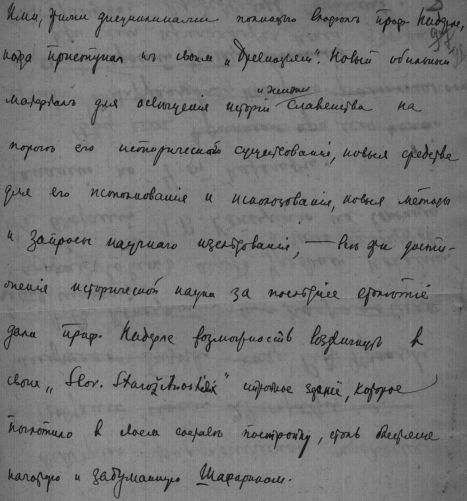 ими, этими дисциплинами помощью которых проф. Нидерле,
когда приступал къ своим „Древностям". Новый обильный
и жизни
материалъ для освещенія исторіи Славянства на
порогъ его историческаго существованія, новыя средства
для его истолкованія и использованія, новые методы
и запросы научнаго изследованія, — все эти дости-
женія исторической науки за последнее столетіе
дали проф. Нидерле возможность воздвигнуть в
своих „Slov. Starožitnostech" зданіе, которое
поглотило в своем составе постройку, столь
начатую и задуманную Шафариком.